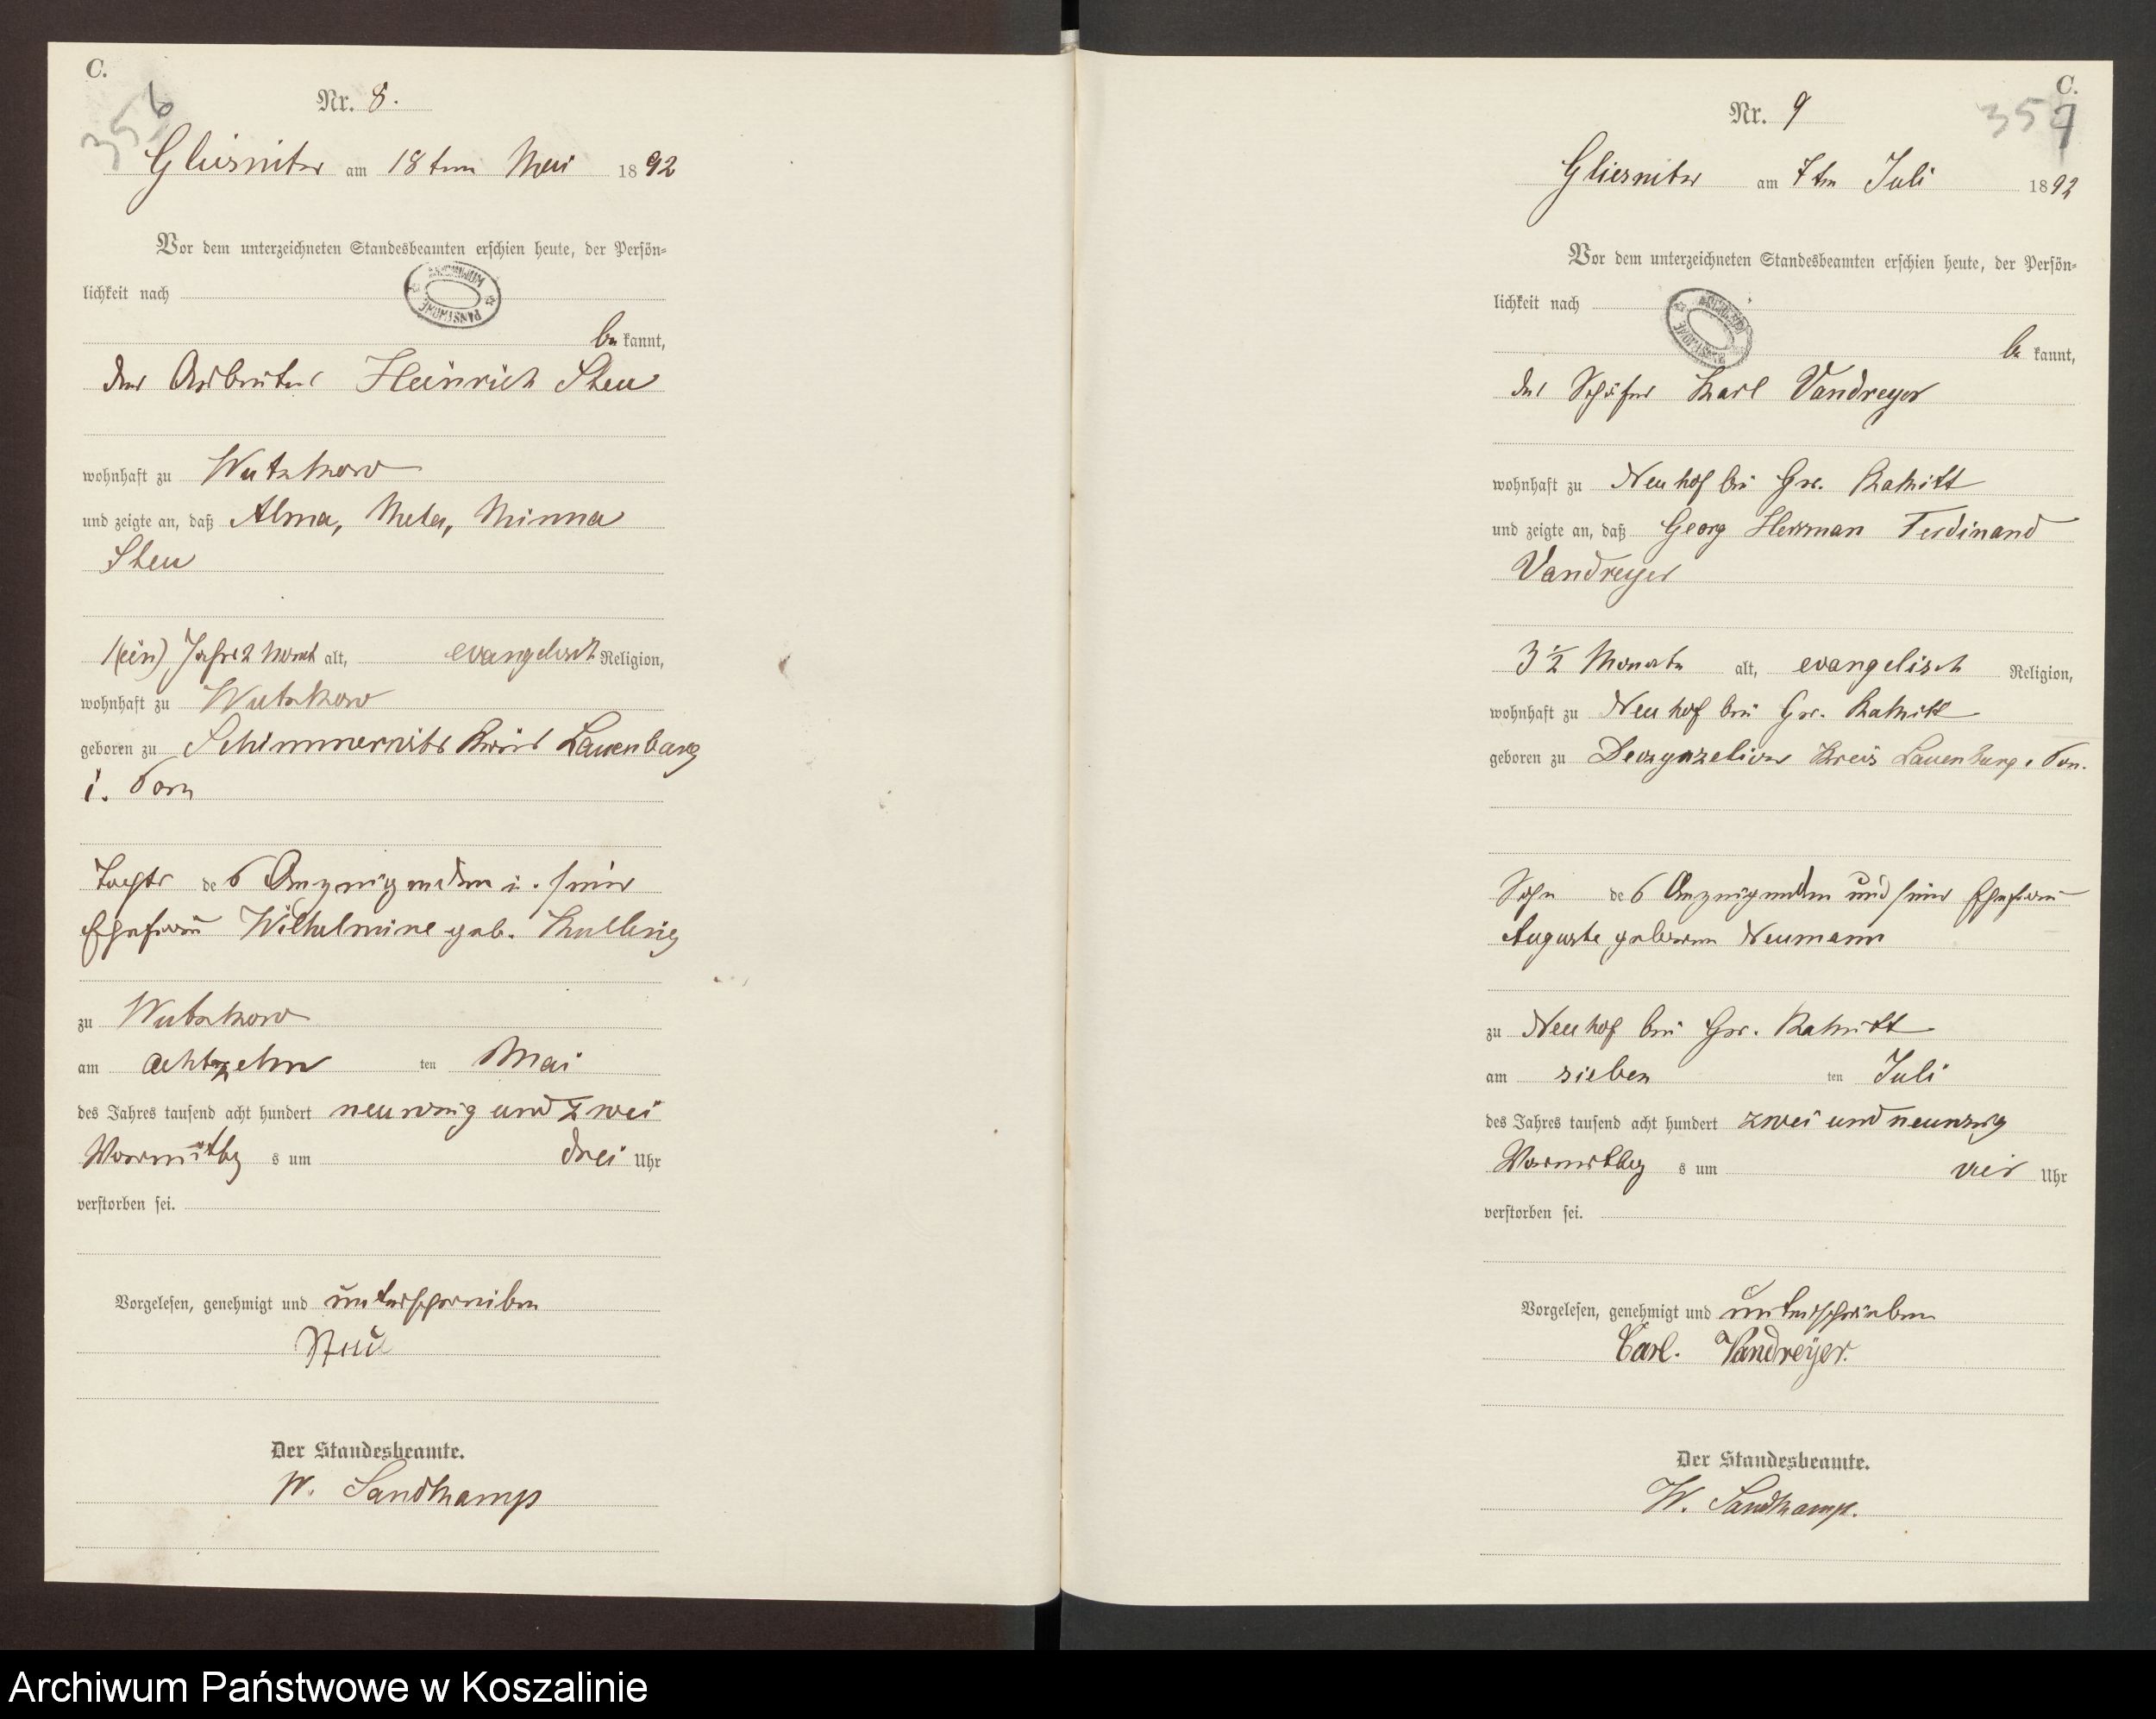 C.
356
Nr. 8.
Gliesnitz am 18ten Mai 1892
Vor dem unterzeichneten Standesbeamten erschien heute, der Persön-
lichkeit nach
ARCHIWUM PAŃSTWOWE
be kannt,
der Arbeiter Heinrich Steu
wohnhaft zu Wutzkow
und zeigte an, daß Alma, Meta, Minna
Steu
1(ein) Jahr 2 Monat alt, evangelisch Religion,
wohnhaft zu Wutzkow
geboren zu Schimmerwitz Kreis Lauenburg
i. Pom
Tochter des Anzeigenden u. seiner
Ehefrau Wilhelmine geb.
zu Wutzkow
am achtzehn ten Mai
des Jahres tausend acht hundert neunzig und zwei
Vormittag s um drei Uhr
verstorben sei.
Vorgelesen, genehmigt und unterschrieben
Steu
Der Standesbeamte.
W. Sandkamp
C.
357
Nr. 9
Gliesnitz am 7ten Juli 1892
Vor dem unterzeichneten Standesbeamten erschien heute, der Persön-
lichkeit nach
ARCHIWUM PAŃSTWOWE
be kannt,
der Schäfer Karl Vandreyer
wohnhaft zu Neuhof bei Gr. Rakitt
und zeigte an, daß Georg Herrman Ferdinand
Vandreyer
3 1/2 Monate alt, evangelisch Religion,
wohnhaft zu Neuhof bei Gr. Rakitt
geboren zu Kreis Lauenburg i Pom.
Sohn des Anzeigenden und seiner Ehefrau
Auguste geborene Neumann
zu Neuhof bei Gr. Rakitt
am sieben ten Juli
des Jahres tausend acht hundert zwei und neunzig
Vormittag s um vier Uhr
verstorben sei.
Vorgelesen, genehmigt und unterschrieben
Carl. Vandreÿer.
Der Standesbeamte.
W. Sandkamp.
Archiwum Państwowe w Koszalinie